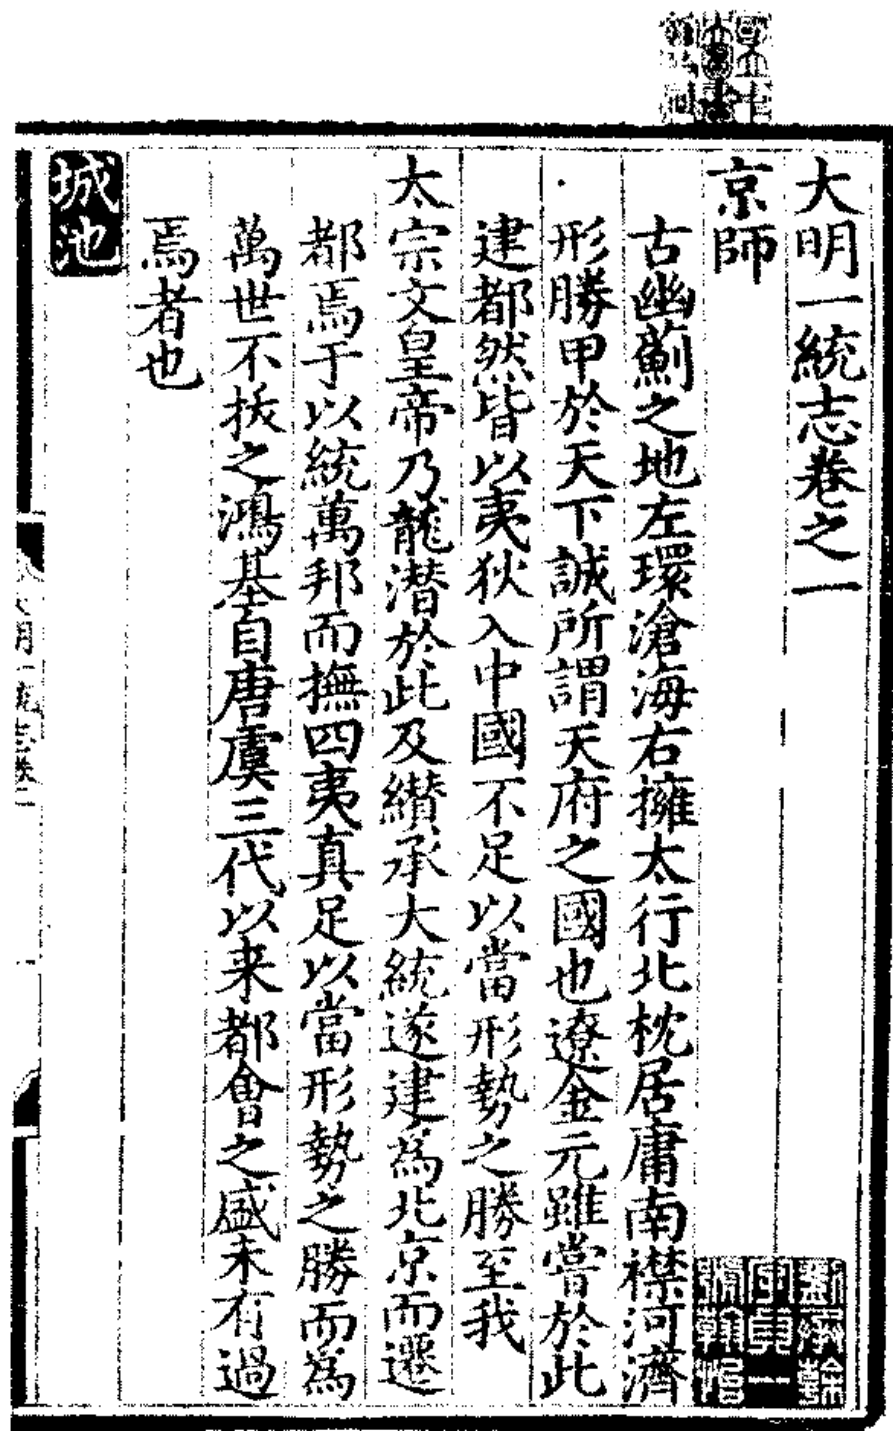 大明一統志卷之一
京師
古幽薊之地左環滄海右擁太行北枕居庸南襟河濟
形勝甲於天下誠所謂天府之國也遼金元雖嘗於此
建都然皆以夷狄入中國不足以當形勢之勝至我
太宗文皇帝乃龍潜於此及纘承大統遂建為北京而遷
都焉于以統萬邦而撫四夷真足以當形勢之勝而為
萬世不拔之鴻基自唐虞三代以来都會之盛未有過
焉者也
城池